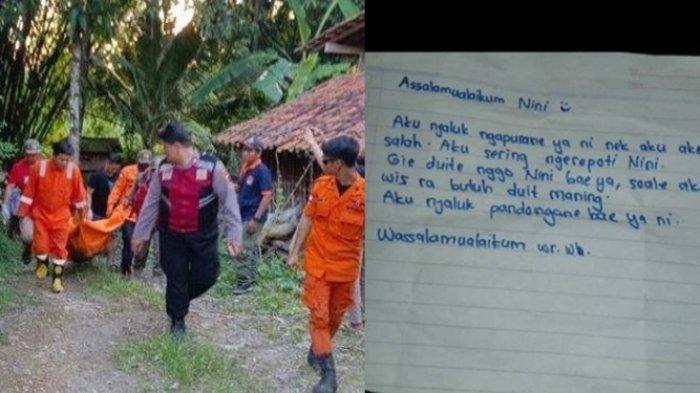 Assalamualaikum Nini
Aku njaluk ngapurane ya ni nek aku ake
salah. Aku sering ngerepoti Nini.
Gie duite nggo Nini bae ya, soale ak
wis ra butuh duit maning.
Aku njaluk pandongane bae ya ni.
Wassalamualaikum wr. wb.